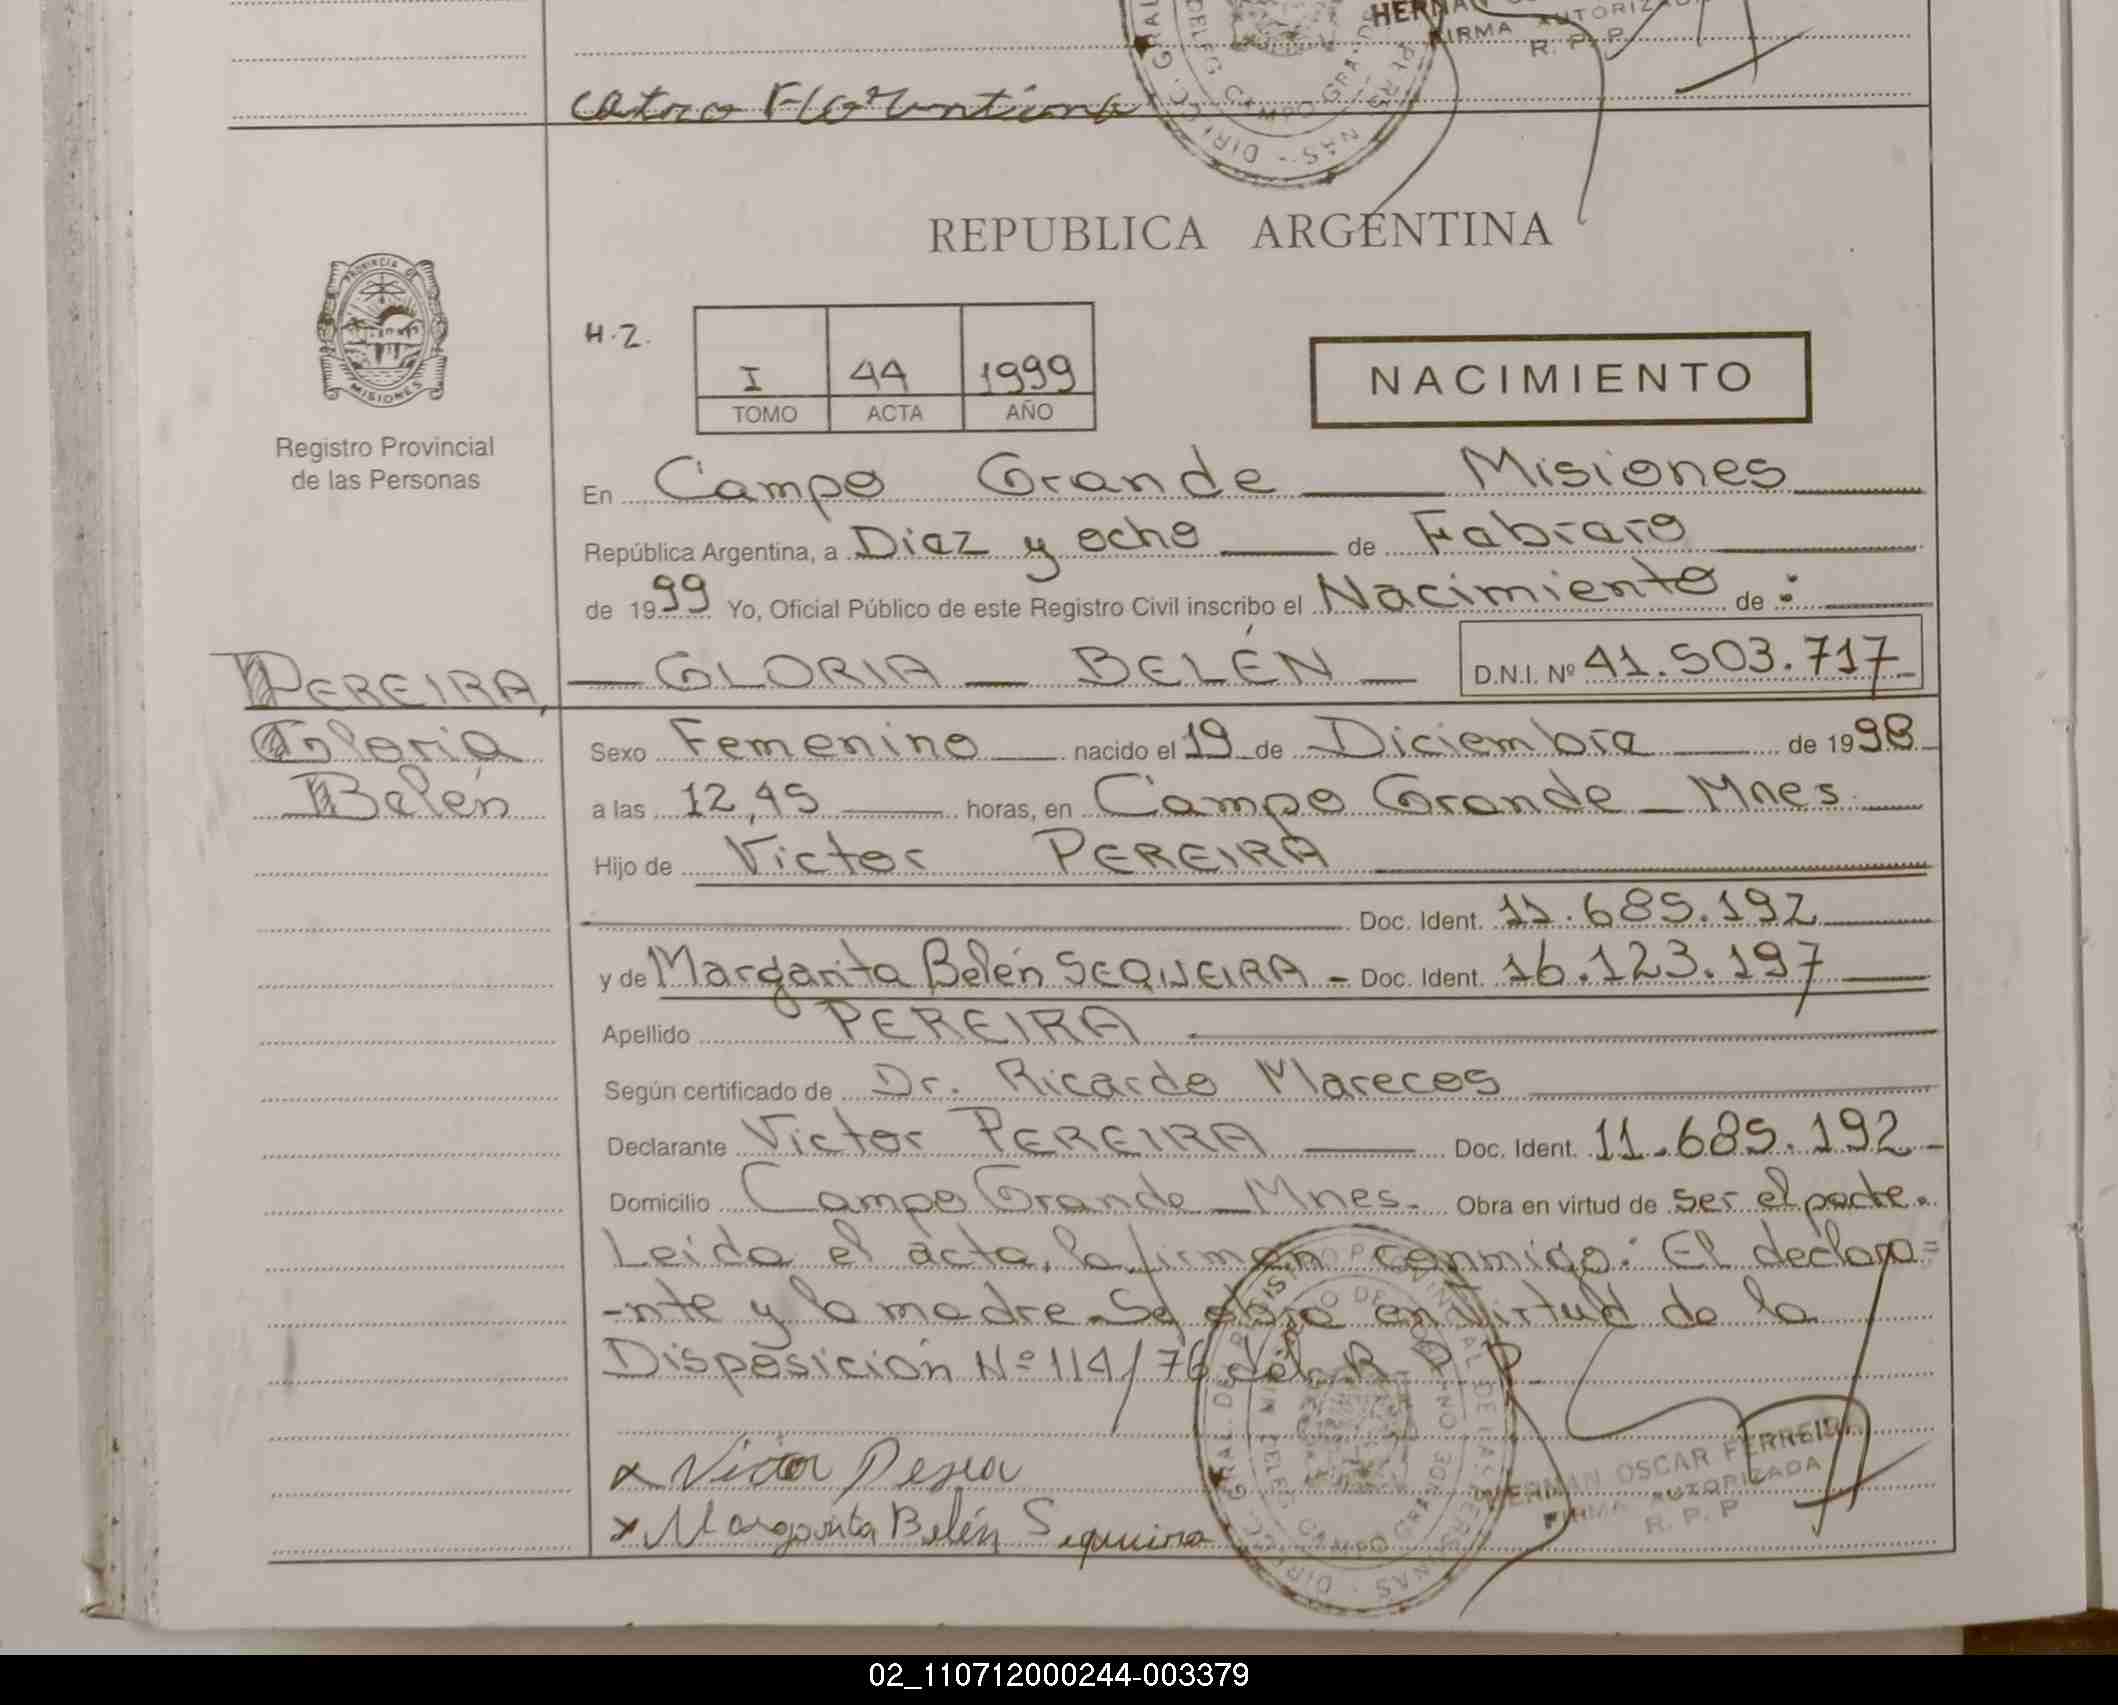 HERNAN
FIRMA AUTORIZADA
R. P. P.
DIRECC. GRAL.
CAMPO GRANDE
REPUBLICA ARGENTINA
PROVINCIA DE
MISIONES
Registro Provincial
de las Personas
H.2.
I 44 1999
TOMO ACTA AÑO
NACIMIENTO
En Campo Grande Misiones
República Argentina, a Diez y ocho de Febrero
de 1999 Yo, Oficial Público de este Registro Civil inscribo el Nacimiento de :
PEREIRA, — GLORIA — BELÉN — D.N.I. Nº 41.503.717
Gloria Sexo Femenino nacido el 19 de Diciembre de 1998
Belén a las 12,45 horas, en Campo Grande — Mnes.
Hijo de Victor PEREIRA
Doc. Ident. 11.685.192
y de Margarita Belén SEQUEIRA - Doc. Ident. 16.123.197
Apellido PEREIRA
Según certificado de Dr. Ricardo Marecos
Declarante Victor PEREIRA Doc. Ident. 11.685.192
Domicilio Campo Grande — Mnes. Obra en virtud de ser el padre.
Leida el acta, la firman conmigo: El declara=
-nte y la madre. Se obra en virtud de la
Disposición Nº 114/76 del R. P. P.
x Victor Pereira
x Margarita Belén Sequeira
HERNAN OSCAR FERREIRA
FIRMA AUTORIZADA
R. P. P
DIRECC. GRAL. DEL REGISTRO PROVINCIAL DE LAS PERSONAS
CAMPO GRANDE
02_110712000244-003379